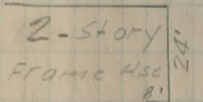 2-Story
Frame Hse
8'
24'